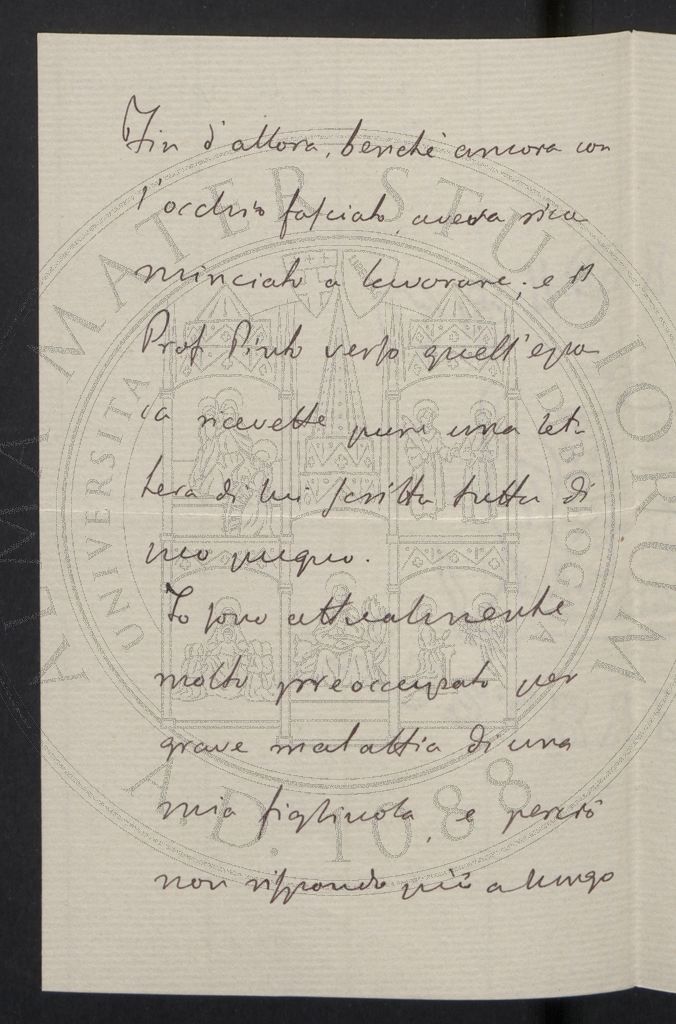 Fin d'allora, benchè ancora con
l'occhio fasciato, aveva rico
minciato a lavorare; e il
Prof. Pinto verso quell'epo
ca ricevette pure una let-
tera di lui scritta tutta di
suo pugno.
Io sono attualmente
molto preoccupato per
grave malattia di una
mia figliuola, e perciò
non rispondo più a lungo
ALMA MATER STUDIORUM
UNIVERSITA DI BOLOGNA
A.D. 1088